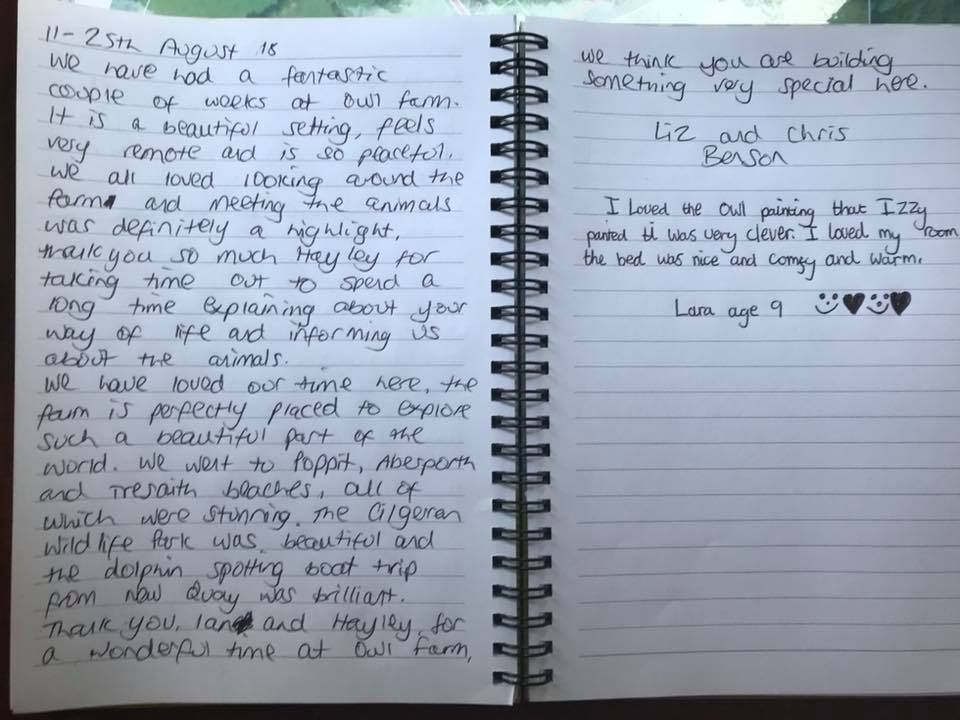 11-25th August 18
We have had a fantastic
couple of weeks at Owl farm.
It is a beautiful setting, feels
very remote and is so peaceful.
We all loved looking around the
farm and meeting the animals
was definitely a highlight,
thank you so much Hayley for
taking time out to spend a
long time explaining about your
way of life and informing us
about the animals.
We have loved our time here, the
farm is perfectly placed to explore
such a beautiful part of the
world. We went to Poppit, Aberporth
and Tresaith beaches, all of
which were stunning. The Cilgerran
Wildlife Park was beautiful and
the dolphin spotting boat trip
from New Quay was brilliant.
Thank you, Ian and Hayley, for
a wonderful time at Owl Farm,
we think you are building
something very special here.
Liz and Chris
Benson
I Loved the Owl painting that Izzy
painted it was very clever. I loved my room
the bed was nice and comfy and warm.
Lara age 9